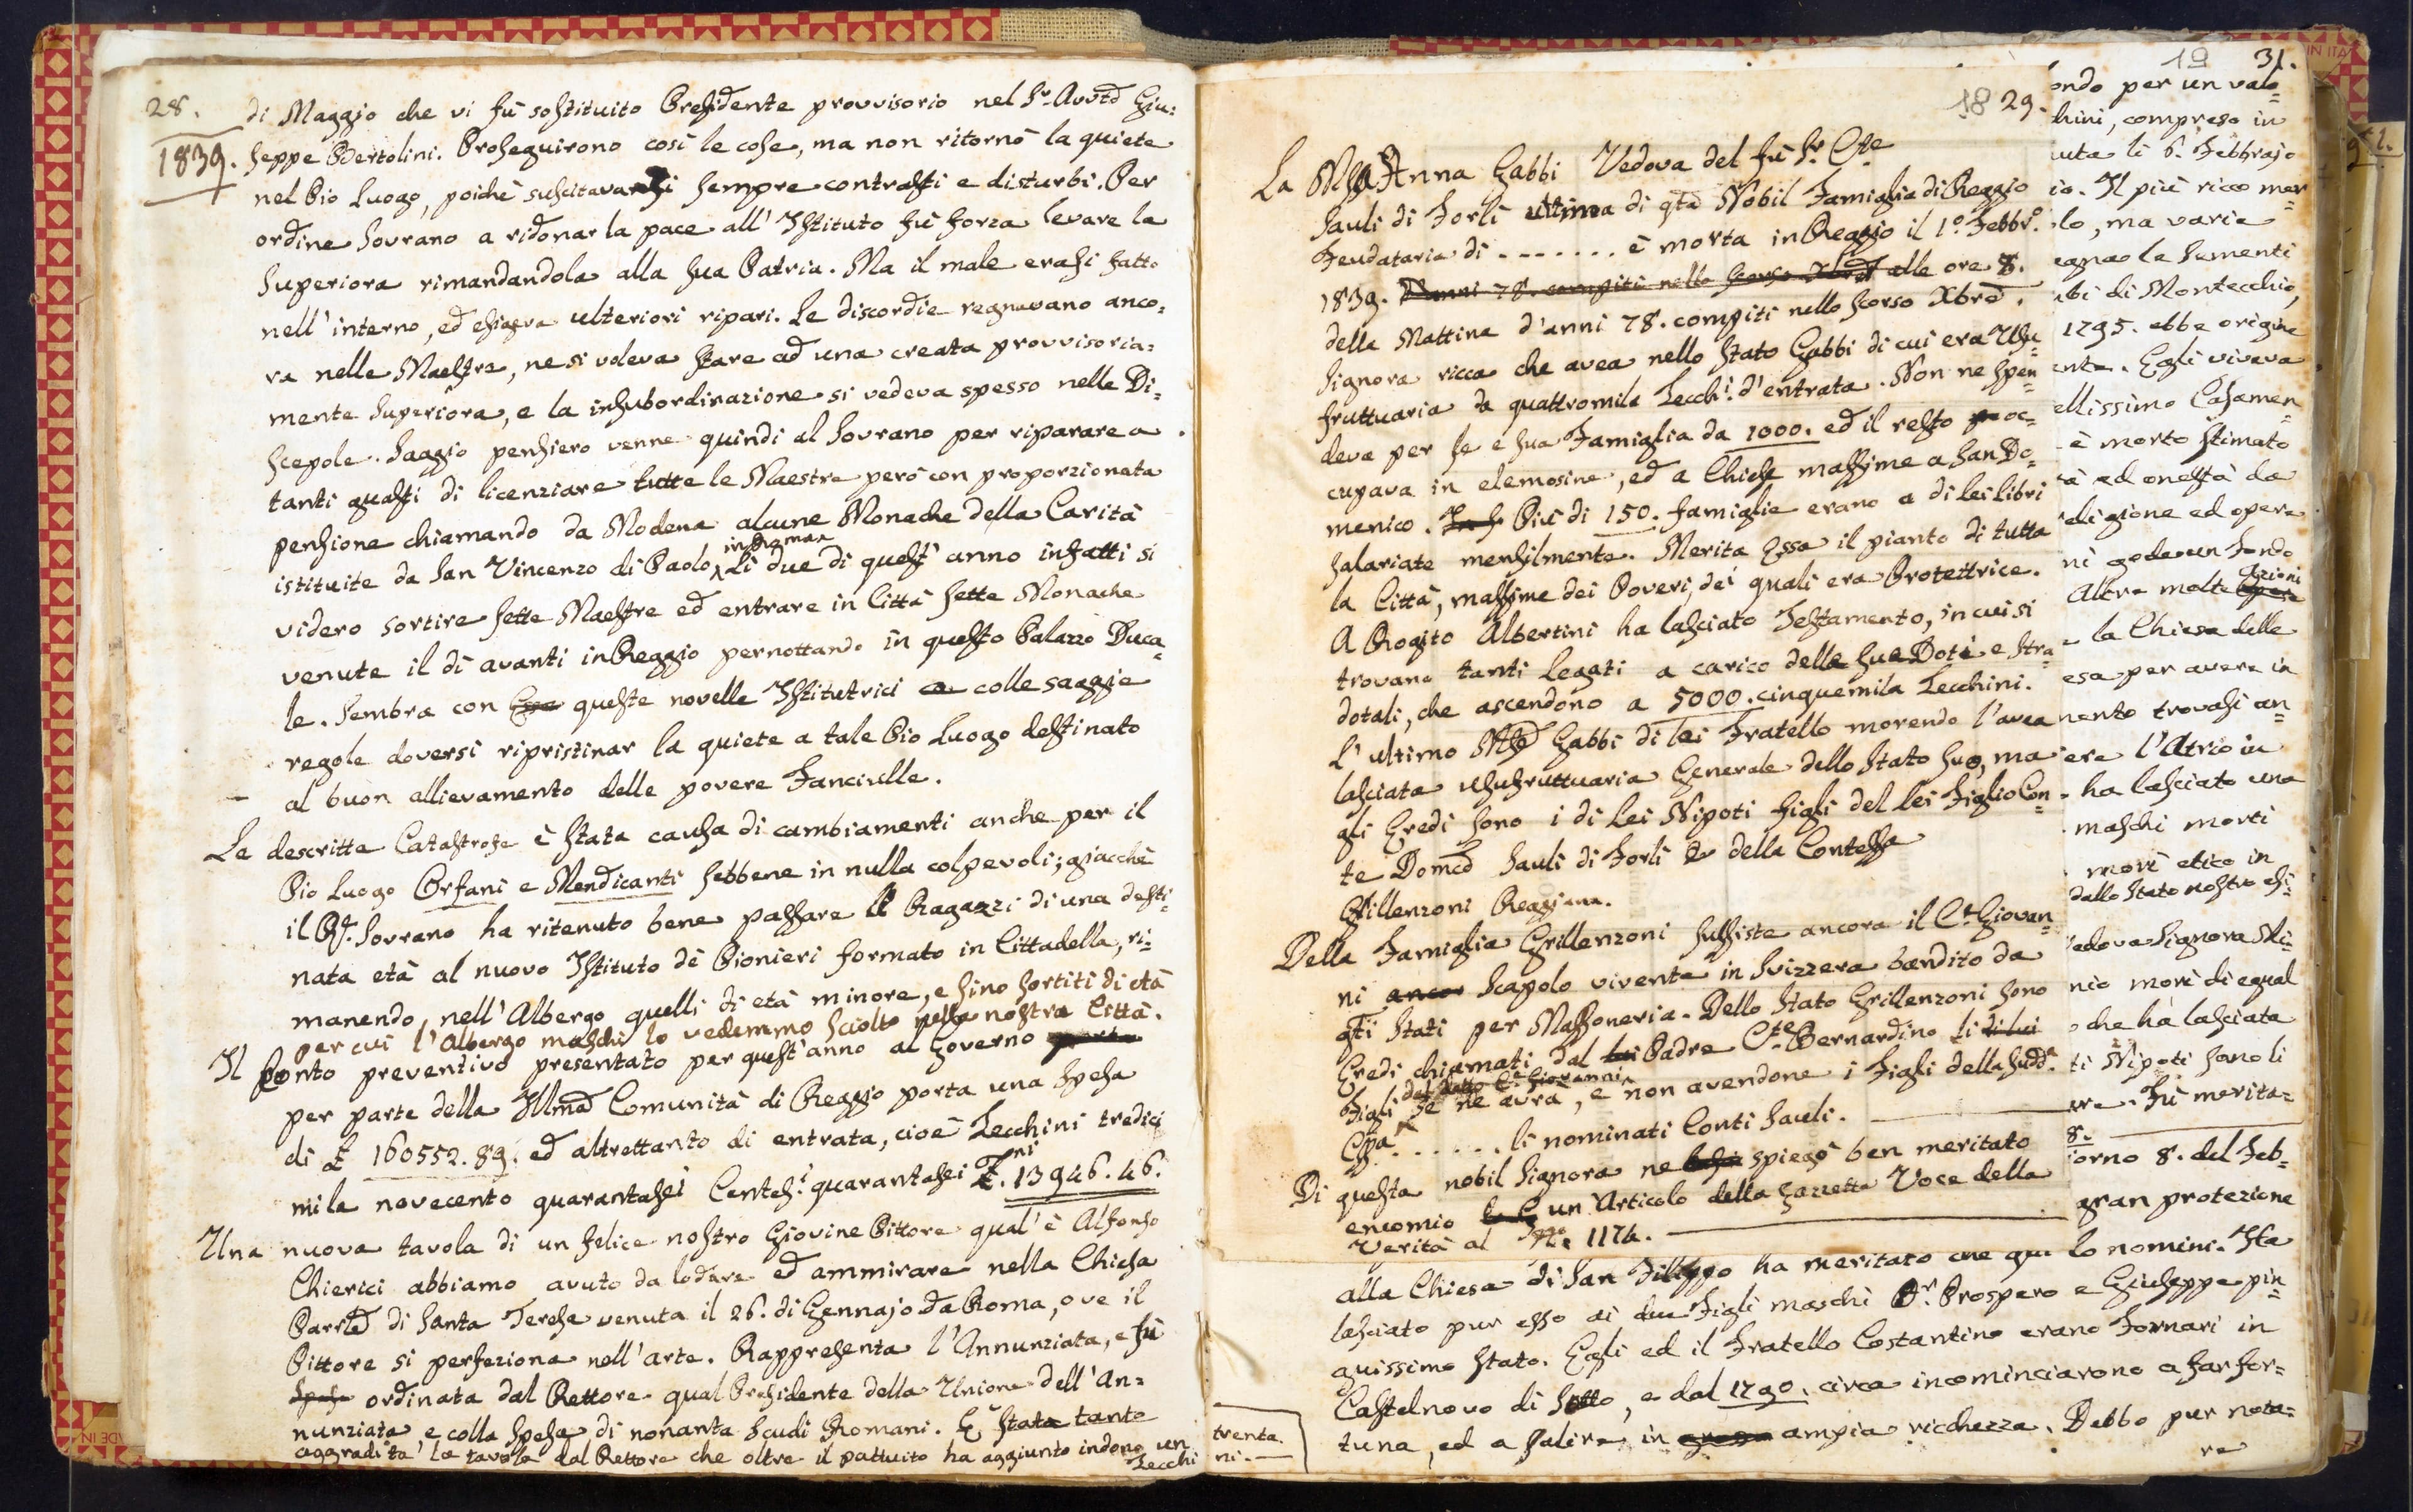 28.
1839.
di Maggio che vi fù sostituito Presidente provvisorio nel Sr. Avvto Giu=
seppe Bertolini. Proseguirono così le cose, ma non ritornò la quiete
nel Pio Luogo, poichè suscitavansi sempre contrasti e disturbi. Per
ordine Sovrano a ridonar la pace all' Istituto fù forza levare la
Superiora rimandandola alla sua Patria. Ma il male erasi fatto
nell'interno, ed esigeva ulteriori ripari. Le discordie regnavano anco=
ra nelle Maestre, ne si voleva stare ad una creata provvisoria=
mente Superiora, e la insubordinazione si vedeva spesso nelle Di=
scepole. Saggio pensiero venne quindi al Sovrano per riparare a
tanti guasti di licenziare tutte le Maestre però con proporzionata
pensione chiamando da Modena alcune Monache della Carità
istituite da San Vincenzo di Paolo. Li due di quest' anno infatti si
videro sortire sette Maestre ed entrare in Città sette Monache
venute il dì avanti in Reggio pernottando in questo Palazzo Duca=
le. Sembra con queste novelle Istitutrici colle saggie
regole doversi ripristinar la quiete a tale Pio Luogo destinato
al buon allievamento delle povere Fanciulle.
La descritta Catastrofe è stata causa di cambiamenti anche per il
Pio Luogo Orfani e Mendicanti sebbene in nulla colpevoli; giacchè
il Rl. Sovrano ha ritenuto bene passare li Ragazzi di una desti=
nata età al nuovo Istituto de Pionieri formato in Cittadella, ri=
manendo nell'Albergo quelli di età minore, e sino sortiti di età
per cui l'Albergo maschi lo vedemmo sciolto nella nostra Città.
Il Conto preventivo presentato per quest'anno al Governo
per parte della Illma Comunità di Reggio porta una spesa
di £ 160552.89. ed altrettanto di entrata, cioè Zecchini tredici
mila novecento quarantasei Centesi quarantasei Zni. 13946.46.
Una nuova tavola di un felice nostro Giovine Pittore qual'è Alfonso
Chierici abbiamo avuto da lodare ed ammirare nella Chiesa
Parrle di Santa Teresa venuta il 26. di Gennajo da Roma, ove il
Pittore si perfeziona nell'arte. Rappresenta l'Annunziata, e fù
ordinata dal Rettore qual Presidente della Unione dell'An=
nunziata e colla spesa di nonanta Scudi Romani. È stata tanto
aggradita la tavola dal Rettore che oltre il pattuito ha aggiunto in dono un
Zecchi
18 29.
La Msa Anna Gabbi Vedova del fù Sr. Cte
Sauli di Forlì ultima di qta Nobil Famiglia di Reggio
Feudataria di ....... è morta in Reggio il 1°. Febbr°.
1839. D'anni 78. compiti nello scorso Xbre alle ore 8.
della Mattina d'anni 78. compiti nello scorso Xbre.
Signora ricca che avea nello Stato Gabbi di cui era Usu=
fruttuaria da quattromila Zecchi. d'entrata. Non ne spen=
deva per se e sua Famiglia da 1000. ed il resto oc=
cupava in elemosine, ed a Chiese massime a San Do=
menico. Più di 150. famiglie erano a di Lei Libri
salariate mensilmente. Merita Essa il pianto di tutta
la Città, massime dei Poveri, dei quali era Protettrice.
A Rogito Albertini ha lasciato Testamento, in cui si
trovano tanti Legati a carico delle sue Doti e Stra=
dotali, che ascendono a 5000. cinquemila Zecchini.
L'ultimo Mse Gabbi di lei Fratello morendo l'avea
lasciata usufruttuaria Generale dello Stato suo, ma
gli Eredi sono i di Lei Nipoti figli del lei Figlio Con=
te Domco Sauli di Forlì e della Contessa
Grillenzoni Reggiana.
Della Famiglia Grillenzoni sussiste ancora il Ct. Giovan=
ni ancor Scapolo vivente in Svizzera bandito da
qti Stati per Massoneria. Dello Stato Grillenzoni sono
Eredi chiamati dal Padre Cte. Bernardino li di lui
del detto Ct. Giovanni
Figli se ne avrà, e non avendone i Figli della sudda.
Cssa ...... li nominati Conti Sauli.
Di questa nobil Signora ne spiegò ben meritato
encomio un Articolo della Gazzetta Voce della
Verità al N°. 1174.
19 31.
ondo per un valo=
chini, compreso in
uta li 6. Febbrajo
io. Il più ricco mer=
lo, ma varie
egnao le Sementi
bi di Montecchio,
1795. ebbe origine
ente. Egli viveva
ellissimo Casamen=
è morto stimato
tà ed onestà da
eligione ed opere
ni gode un Fondo
Altre molte azioni
la Chiesa delle
esa per avere in
nento trovasi an=
era l'Atrio in
ha lasciato una
maschi morti
morì etico in
dallo Stato nostro esi=
edova Signora Mi=
nio morì di egual
che ha lasciata
ti Nipoti sono li
re. Fù merita=
8.
iorno 8. del Feb=
gran protezione
alla Chiesa di San Filippo ha meritato che qui lo nomini. Ha
lasciato pur esso ai due Figli maschi Dr. Prospero e Giuseppe pin=
guissimo stato. Egli ed il Fratello Costantino erano Fornari in
Castelnovo di Sotto, e dal 1790. circa incominciarono a far for=
tuna, ed a salire in ampia ricchezza. Debbo pur nota=
re
trenta.
ni.